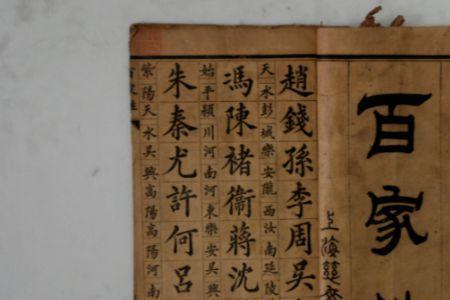 百家
上海
趙錢孫李周吳
天水彭城樂安隴西汝南延陵
馮陳褚衞蔣沈
始平潁川河南河東樂安吳興
朱秦尤許何呂
紫陽天水吳興高陽高陽河